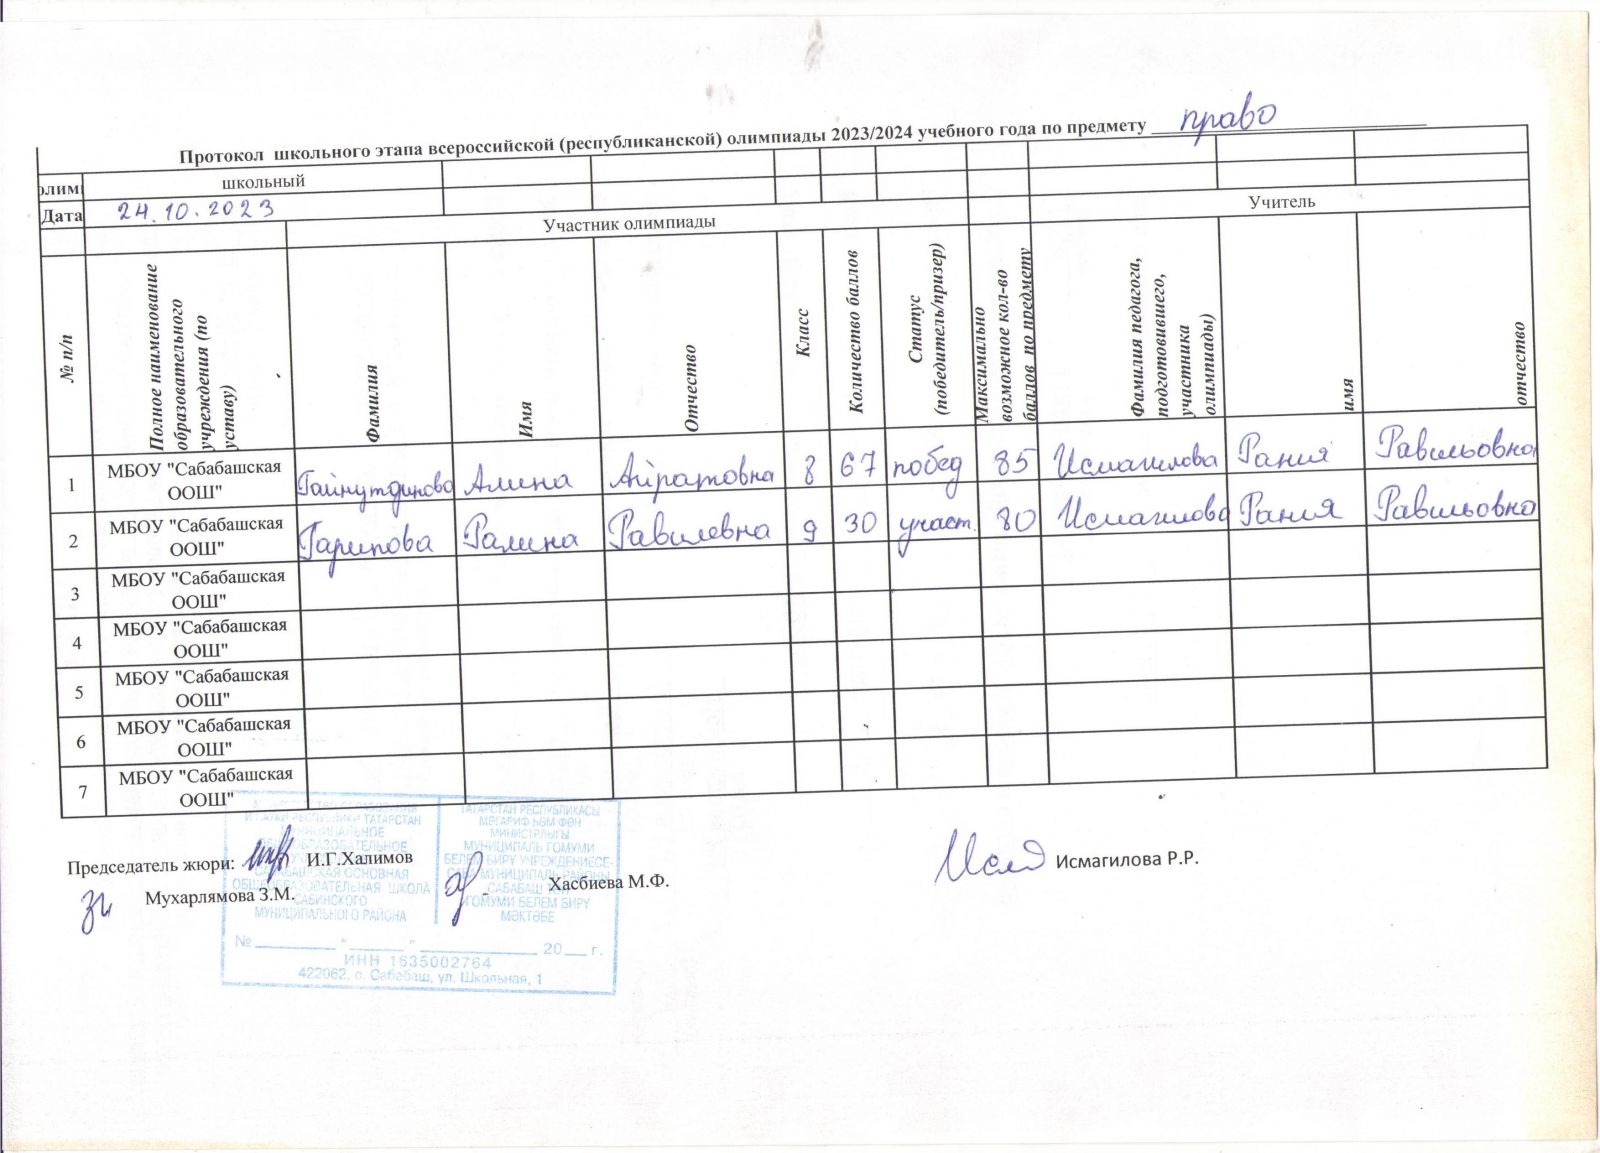 Протокол школьного этапа всероссийской (республиканской) олимпиады 2023/2024 учебного года по предмету право
олимп школьный
Дата 24.10.2023
Участник олимпиады Учитель
№ п/п
Полное наименование образовательного учреждения (по уставу)
Фамилия
Имя
Отчество
Класс
Количество баллов
Статус (победитель/призер)
Максимально возможное кол-во баллов по предмету
Фамилия педагога, подготовившего, участника олимпиады)
имя
отчество
1 МБОУ "Сабабашская ООШ" Гайнутдинова Алина Айратовна 8 67 побед 85 Исмагилова Рания Равильовна
2 МБОУ "Сабабашская ООШ" Гарипова Ралина Равилевна 9 30 участ. 80 Исмагилова Рания Равильовна
3 МБОУ "Сабабашская ООШ"
4 МБОУ "Сабабашская ООШ"
5 МБОУ "Сабабашская ООШ"
6 МБОУ "Сабабашская ООШ"
7 МБОУ "Сабабашская ООШ"
Председатель жюри: И.Г.Халимов
Мухарлямова З.М.
Хасбиева М.Ф.
Исмагилова Р.Р.
И НАУКИ РЕСПУБЛИКИ ТАТАРСТАН
МУНИЦИПАЛЬНОЕ
САБАБАШСКАЯ ОСНОВНАЯ
ОБЩЕОБРАЗОВАТЕЛЬНАЯ ШКОЛА
САБИНСКОГО
МУНИЦИПАЛЬНОГО РАЙОНА
ТАТАРСТАН РЕСПУБЛИКАСЫ
МӘГАРИФ ҺӘМ ФӘН
МИНИСТРЛЫГЫ
МУНИЦИПАЛЬ ГОМУМИ
БЕЛЕМ БИРҮ УЧРЕЖДЕНИЕСЕ-
МУНИЦИПАЛЬ РАЙОНЫ
САБАБАШ ТӨП
ГОМУМИ БЕЛЕМ БИРҮ
МӘКТӘБЕ
№ " " 20 г.
ИНН 1635002764
422062, с. Сабабаш, ул. Школьная, 1